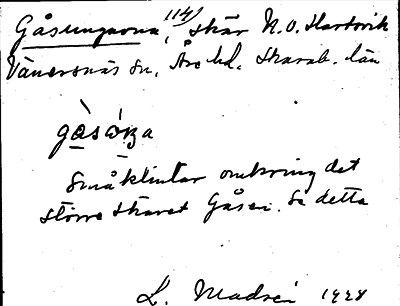 Gåsungarna, 114) skär N.O. Hartorik
Vänersnäs sn, Åse hd. Skarab. län
gåsoŋa
Småklintar omkring det
större skäret Gåsen. Se detta
L. Madsén 1928